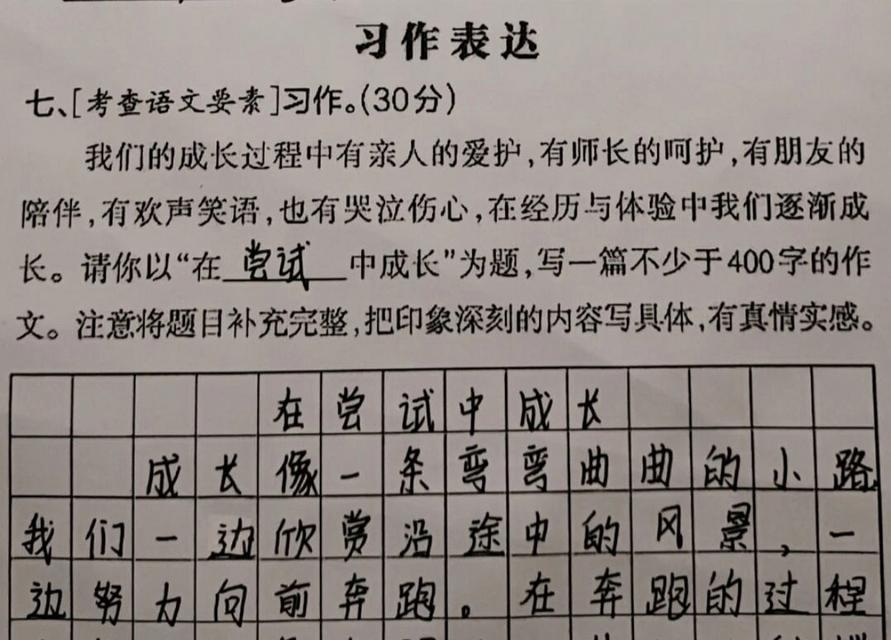 习作表达
七、[考查语文要素]习作。(30分)
我们的成长过程中有亲人的爱护,有师长的呵护,有朋友的
陪伴,有欢声笑语,也有哭泣伤心,在经历与体验中我们逐渐成
长。请你以“在尝试中成长”为题,写一篇不少于400字的作
文。注意将题目补充完整,把印象深刻的内容写具体,有真情实感。
在尝试中成长
成长像一条弯弯曲曲的小路
我们一边欣赏沿途中的风景,一
边努力向前奔跑。在奔跑的过程